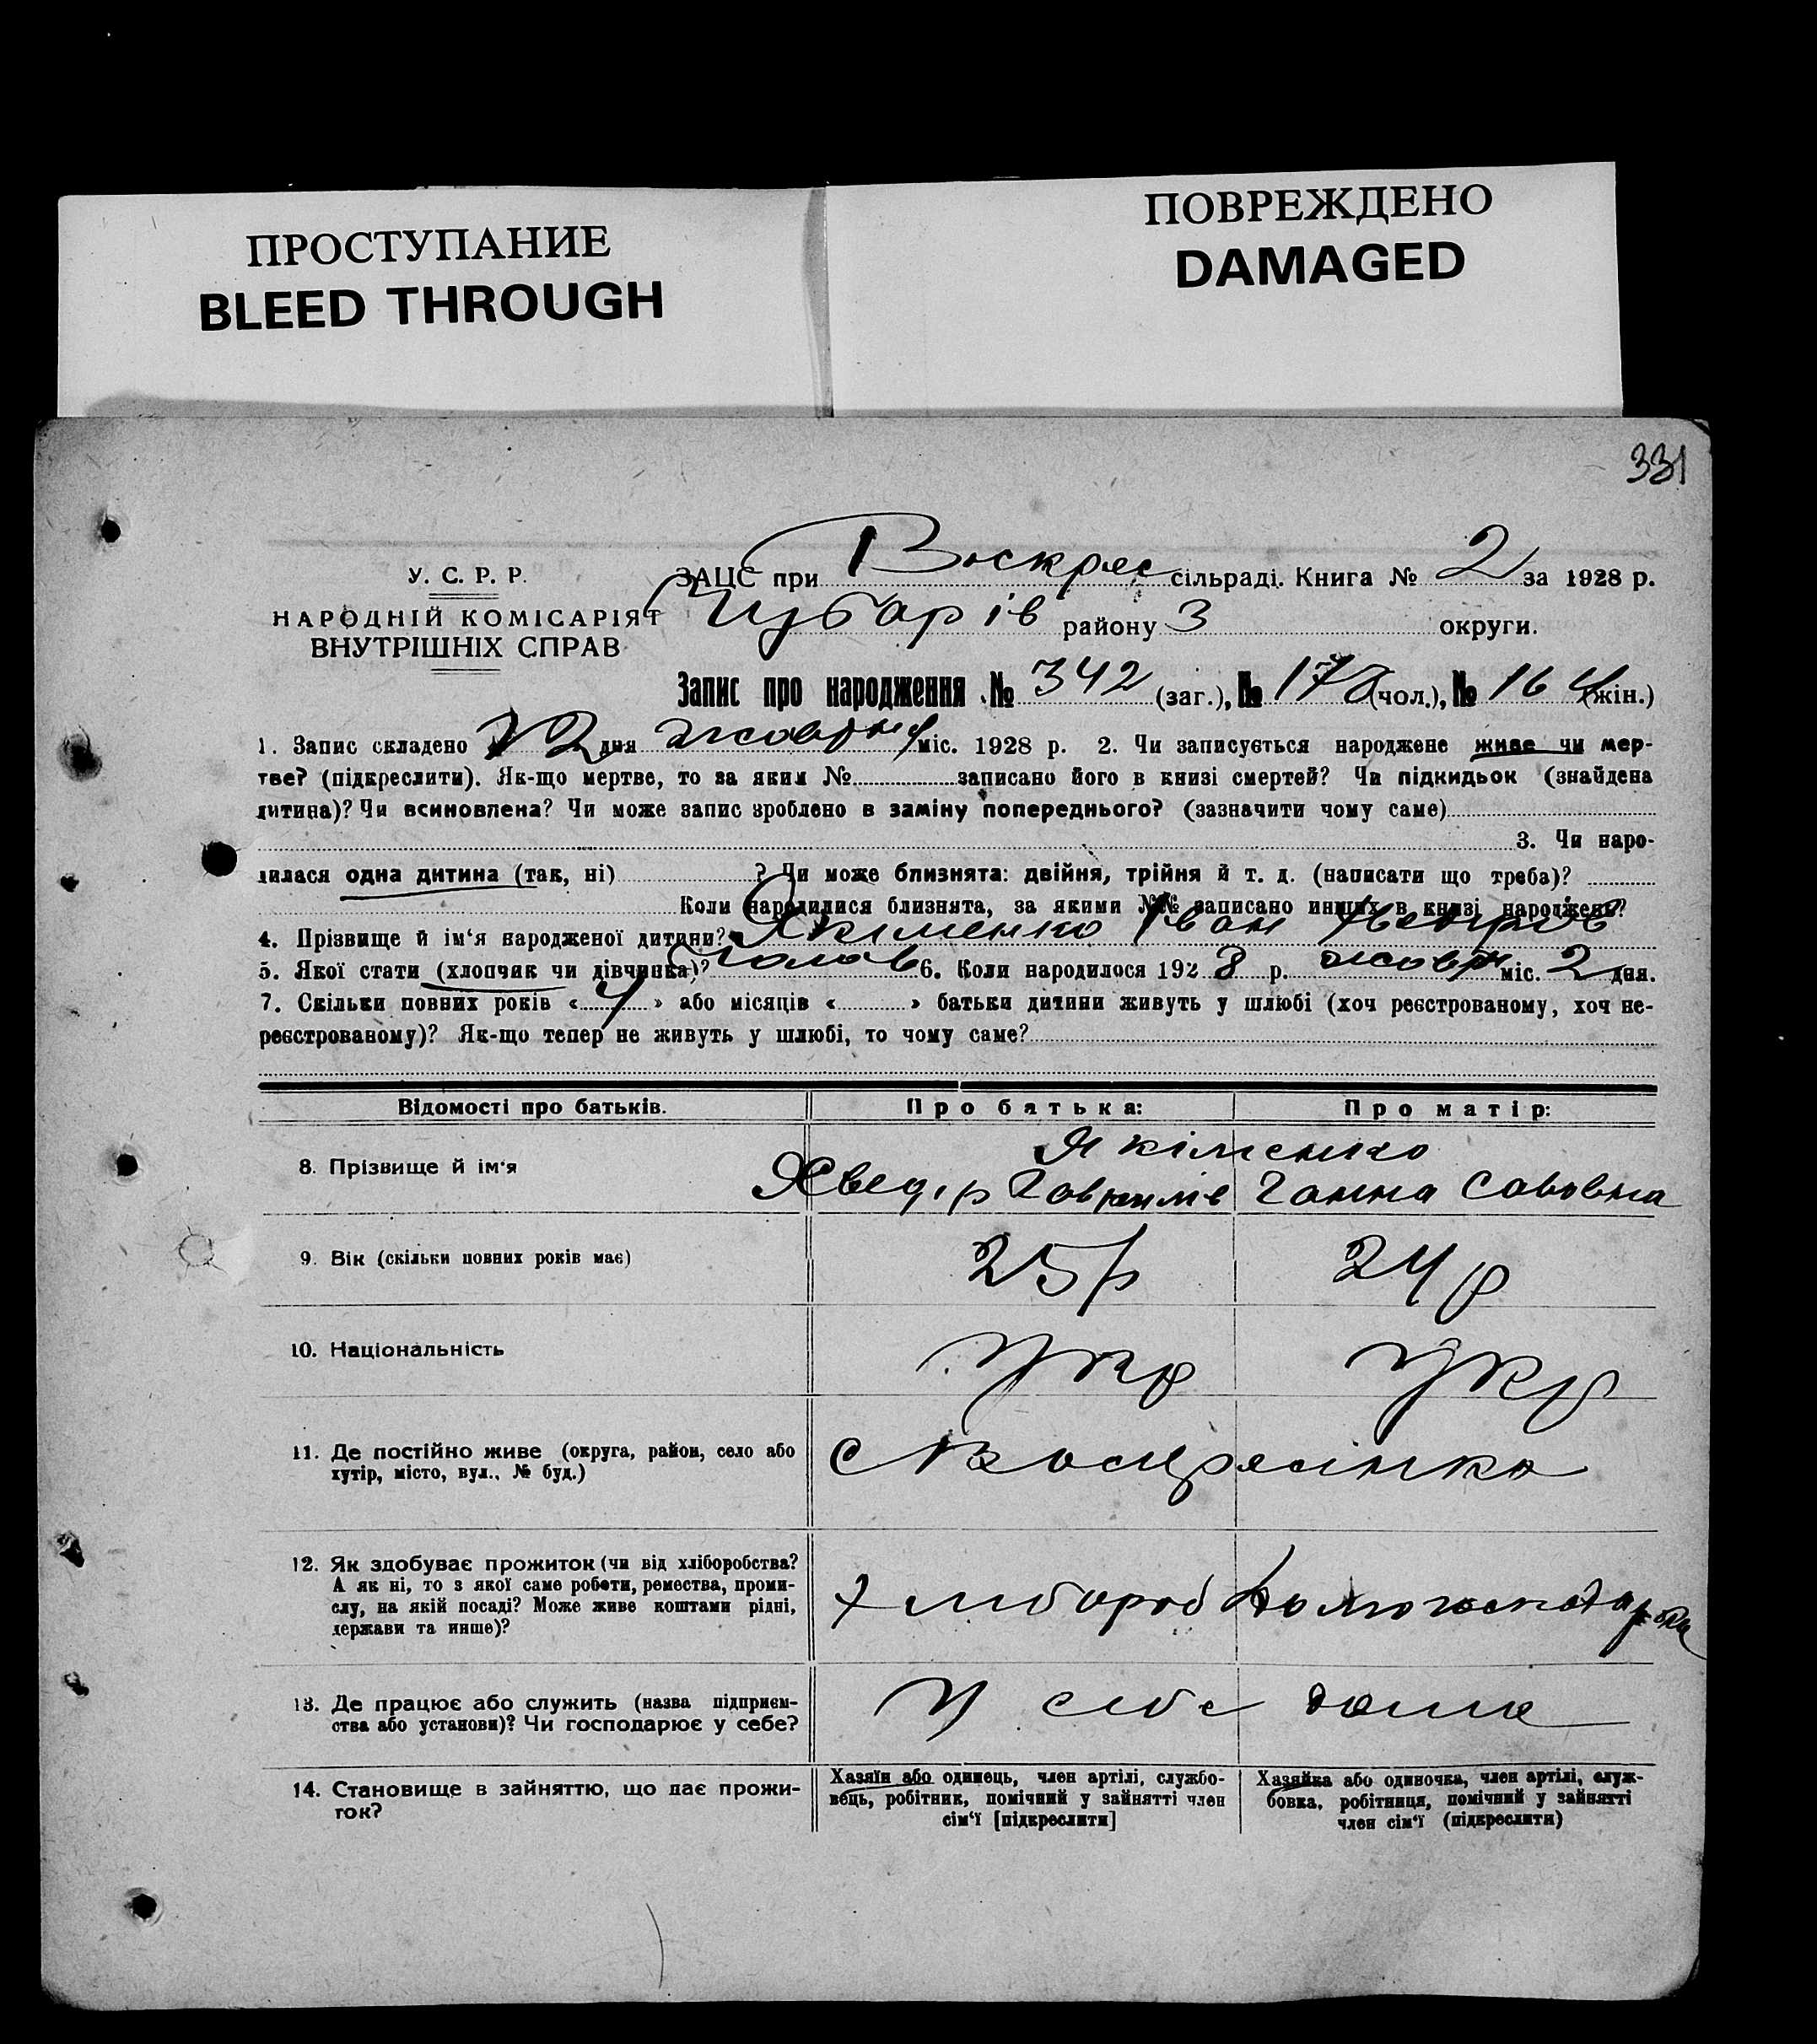 ПРОСТУПАНИЕ
BLEED THROUGH
ПОВРЕЖДЕНО
DAMAGED
331
У. С. Р. Р.
НАРОДНІЙ КОМІСАРІЯТ
ВНУТРІШНІХ СПРАВ
ЗАЦС при Воскрес сільраді. Книга № 2 за 1928 р.
Чубарів району З округи.
Запис про народження № 342 (заг.), № 178 (чол.), № 164 (жін.)
1. Запис складено 12 дня жовтня міс. 1928 р. 2. Чи записується народжене живе чи мер-
тве? (підкреслити). Як-що мертве, то за яким № записано його в книзі смертей? Чи підкидьок (знайдена
дитина)? Чи всиновлена? Чи може запис зроблено в заміну попереднього? (зазначити чому саме)
3. Чи наро-
дилася одна дитина (так, ні) ? Чи може близнята: двійня, трійня й т. д. (написати що треба)?
Коли народилися близнята, за якими №№ записано инших в книзі народжень?
4. Прізвище й ім‘я народженої дитини? Якіменко Іван
5. Якої стати (хлопчик чи дівчинка)? чолов 6. Коли народилося 1928 р. жовтн міс. 2 дня.
7. Скільки повних років « 4 » або місяців « » батьки дитини живуть у шлюбі (хоч реєстрованому, хоч не-
реєстрованому)? Як-що тепер не живуть у шлюбі, то чому саме?
Відомості про батьків. Про батька: Про матір:
Якіменко
8. Прізвище й ім‘я Гаврилів Ганна Савовна
9. Вік (скільки повних років має) 25 р 24 р
10. Національність Укр Укр
11. Де постійно живе (округа, район, село або
хутір, місто, вул., № буд.) с Воскресінка
12. Як здобуває прожиток (чи від хліборобства?
А як ні, то з якої саме роботи, ремества, проми-
слу, на якій посаді? Може живе коштами рідні,
держави та инше)? Хлибороб Домогосподарка
13. Де працює або служить (назва підприєм-
ства або установи)? Чи господарює у себе? У себе дома
14. Становище в зайняттю, що дає прожи-
ток?
Хазяїн або одинець, член артілі, службо-
вець, робітник, помічний у зайнятті член
сім‘ї [підкреслити]
Хазяйка або одиночка, член артілі, служ-
бовка, робітниця, помічний у зайнятті
член сім‘ї (підкреслити)